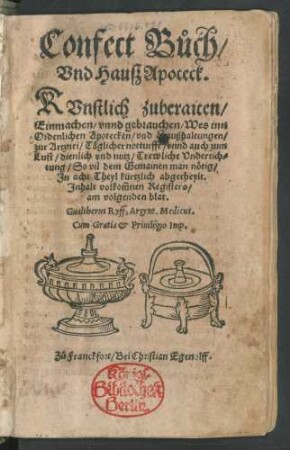 Confect Bůch/
Vnd Hauß Apoteck.
KVnstlich zuberaiten/
Einmachen/ vnnd gebrauchen/ Wes inn
Ordenlichen Apotecken/ vnd Haußhaltungen/
zur Artznei/ Täglicher notturfft/ vnnd auch zum
Lust/ dienlich vnd nutz/ Trewliche Vnderrich-
tung/ So vil dem Gemainen man nötig/
In acht Theyl kürtzlich abgetheylt.
Inhalt volkom̃nen Registers/
am volgenden blat.
Gualtherus Ryff, Argent. Medicus.
Cum Gratia & Priuilegio Imp.
Zů Franckfort/ Bei Christian Egenolff.
Königl.
Bibliothek
Berlin.